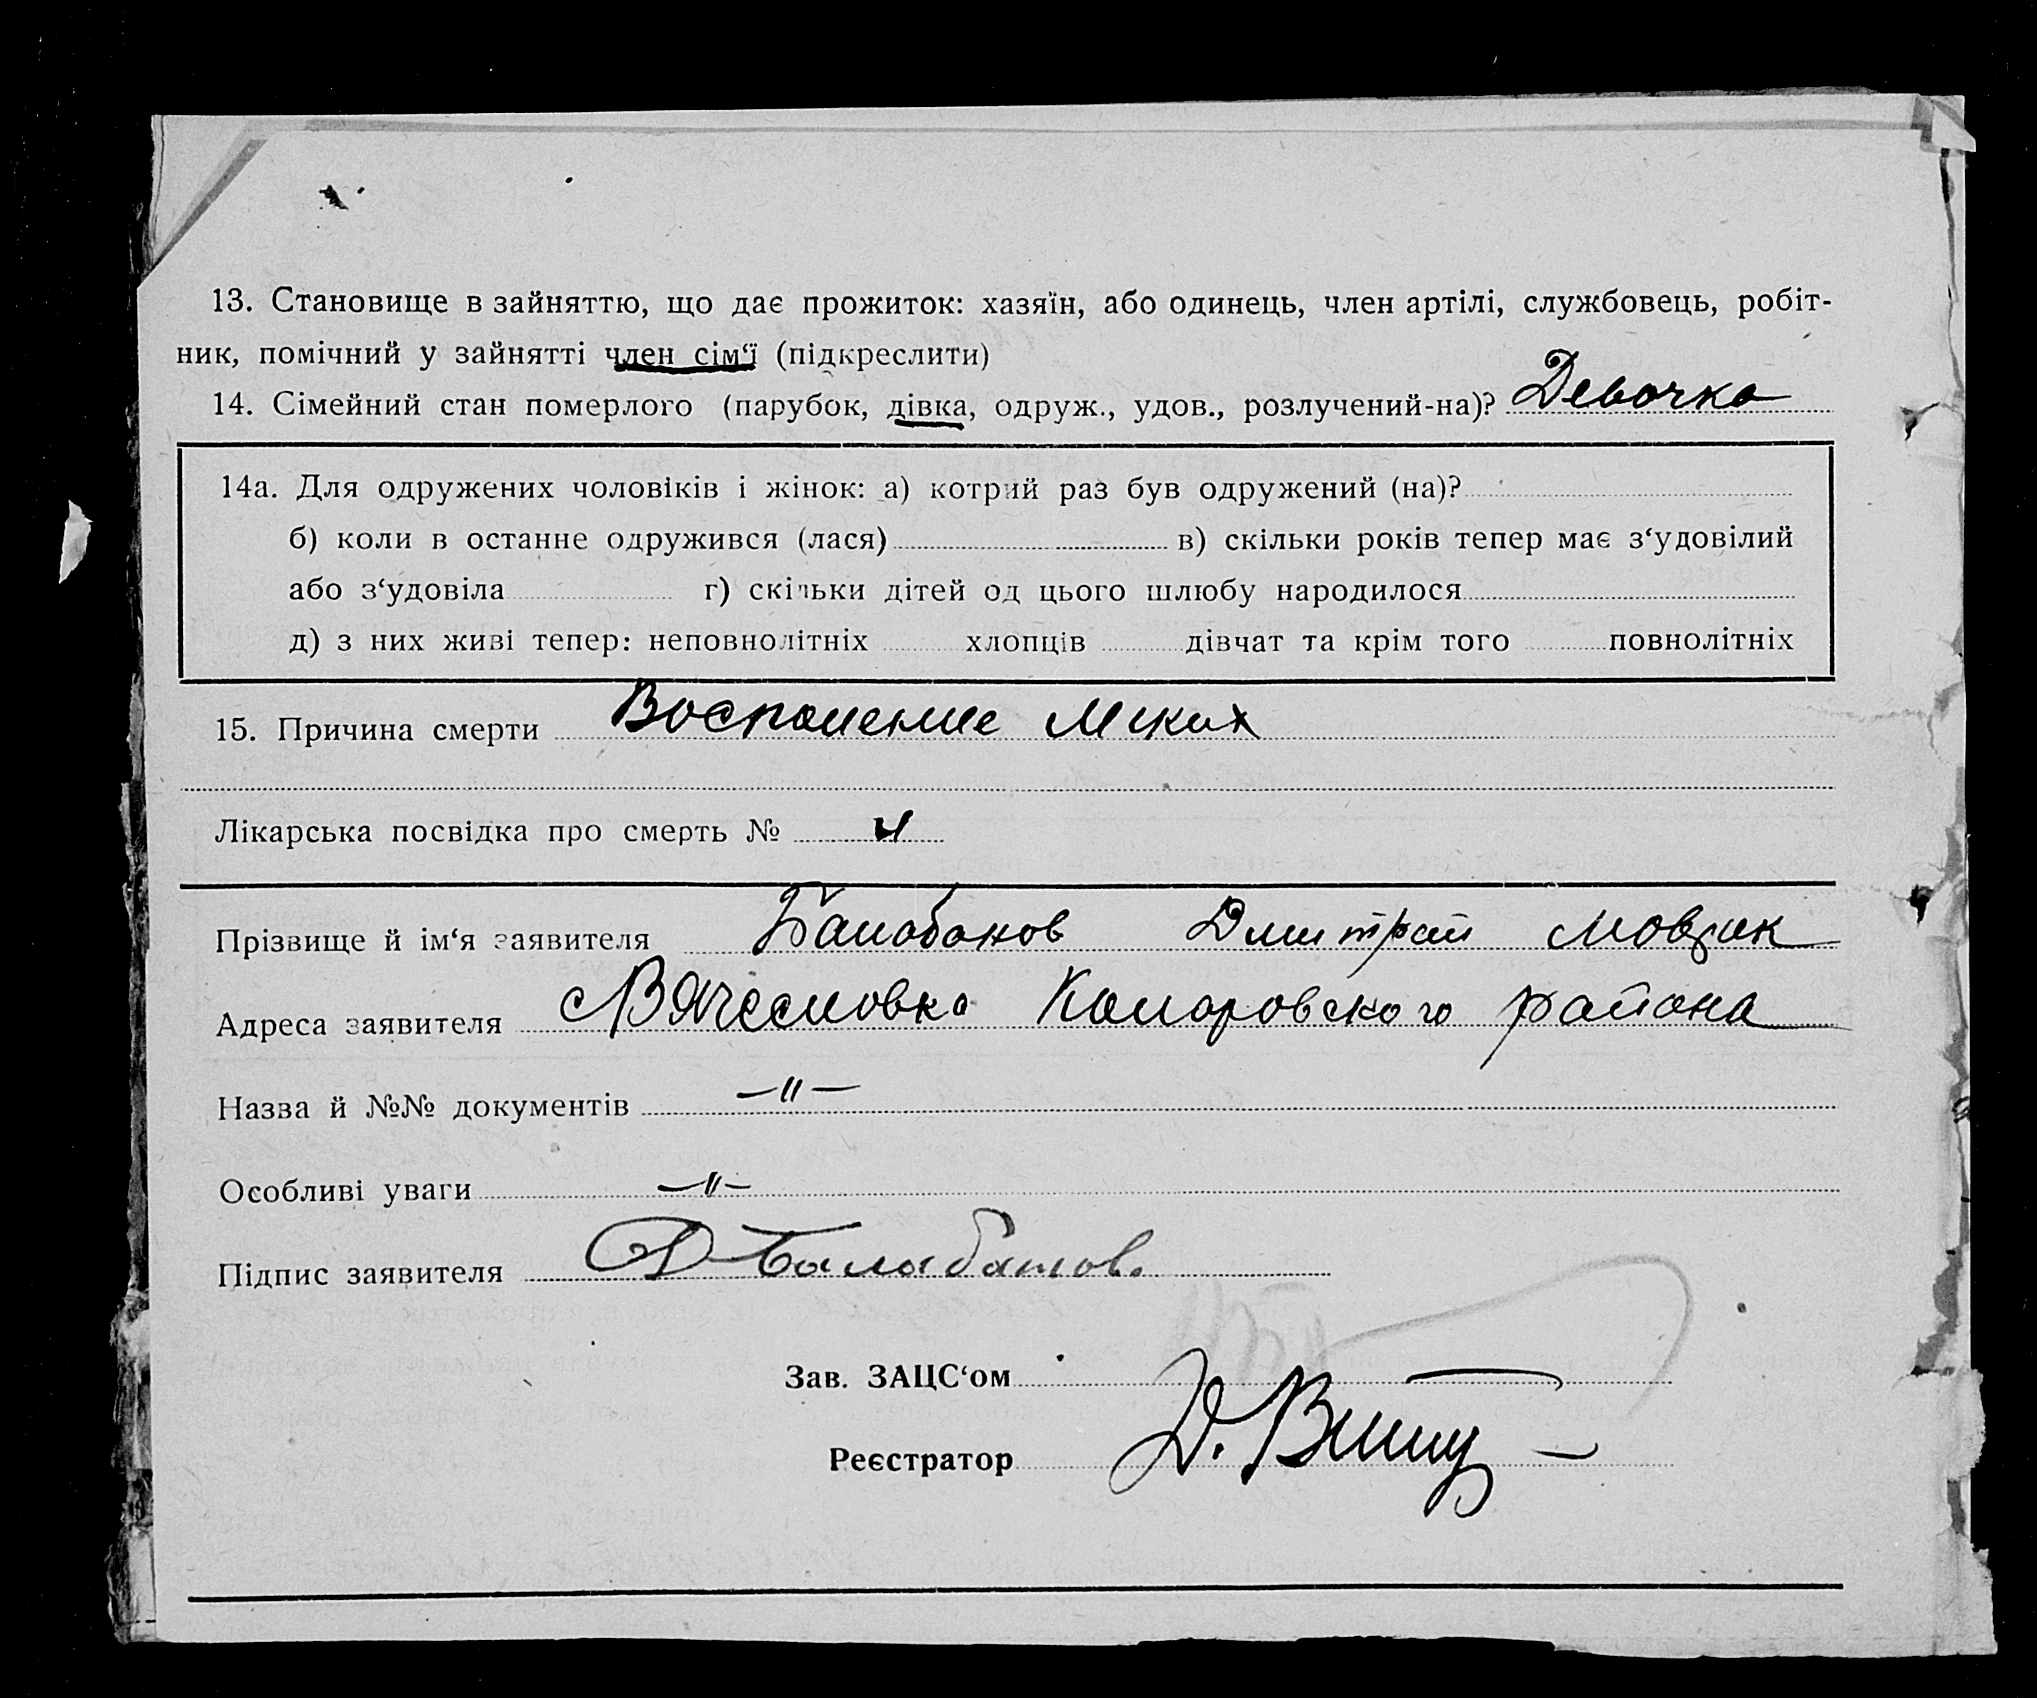 13. Становище в зайняттю, що дає прожиток: хазяїн, або одинець, член артілі, службовець, робіт-
ник, помічний у зайнятті член сім‘ї (підкреслити)
14. Сімейний стан померлого (парубок, дівка, одруж., удов., розлучений-на)? Девочка
14а. Для одружених чоловіків і жінок: а) котрий раз був одружений (на)?
б) коли в останне одружився (лася) в) скільки років тепер має з‘удовілий
або з‘удовіла г) скільки дітей од цього шлюбу народилося
д) з них живі тепер: неповнолітніх хлопців дівчат та крім того повнолітніх
15. Причина смерти Воспаление легких
Лікарська посвідка про смерть № 4
Прізвище й ім‘я заявителя Балабанов Дмитрий
Адреса заявителя с Вячесловка Коларовского района
Назва й №№ документів —〃—
Особливі уваги —〃—
Підпис заявителя Д Балабанов.
Зав. ЗАЦС‘ом
Реєстратор Д.